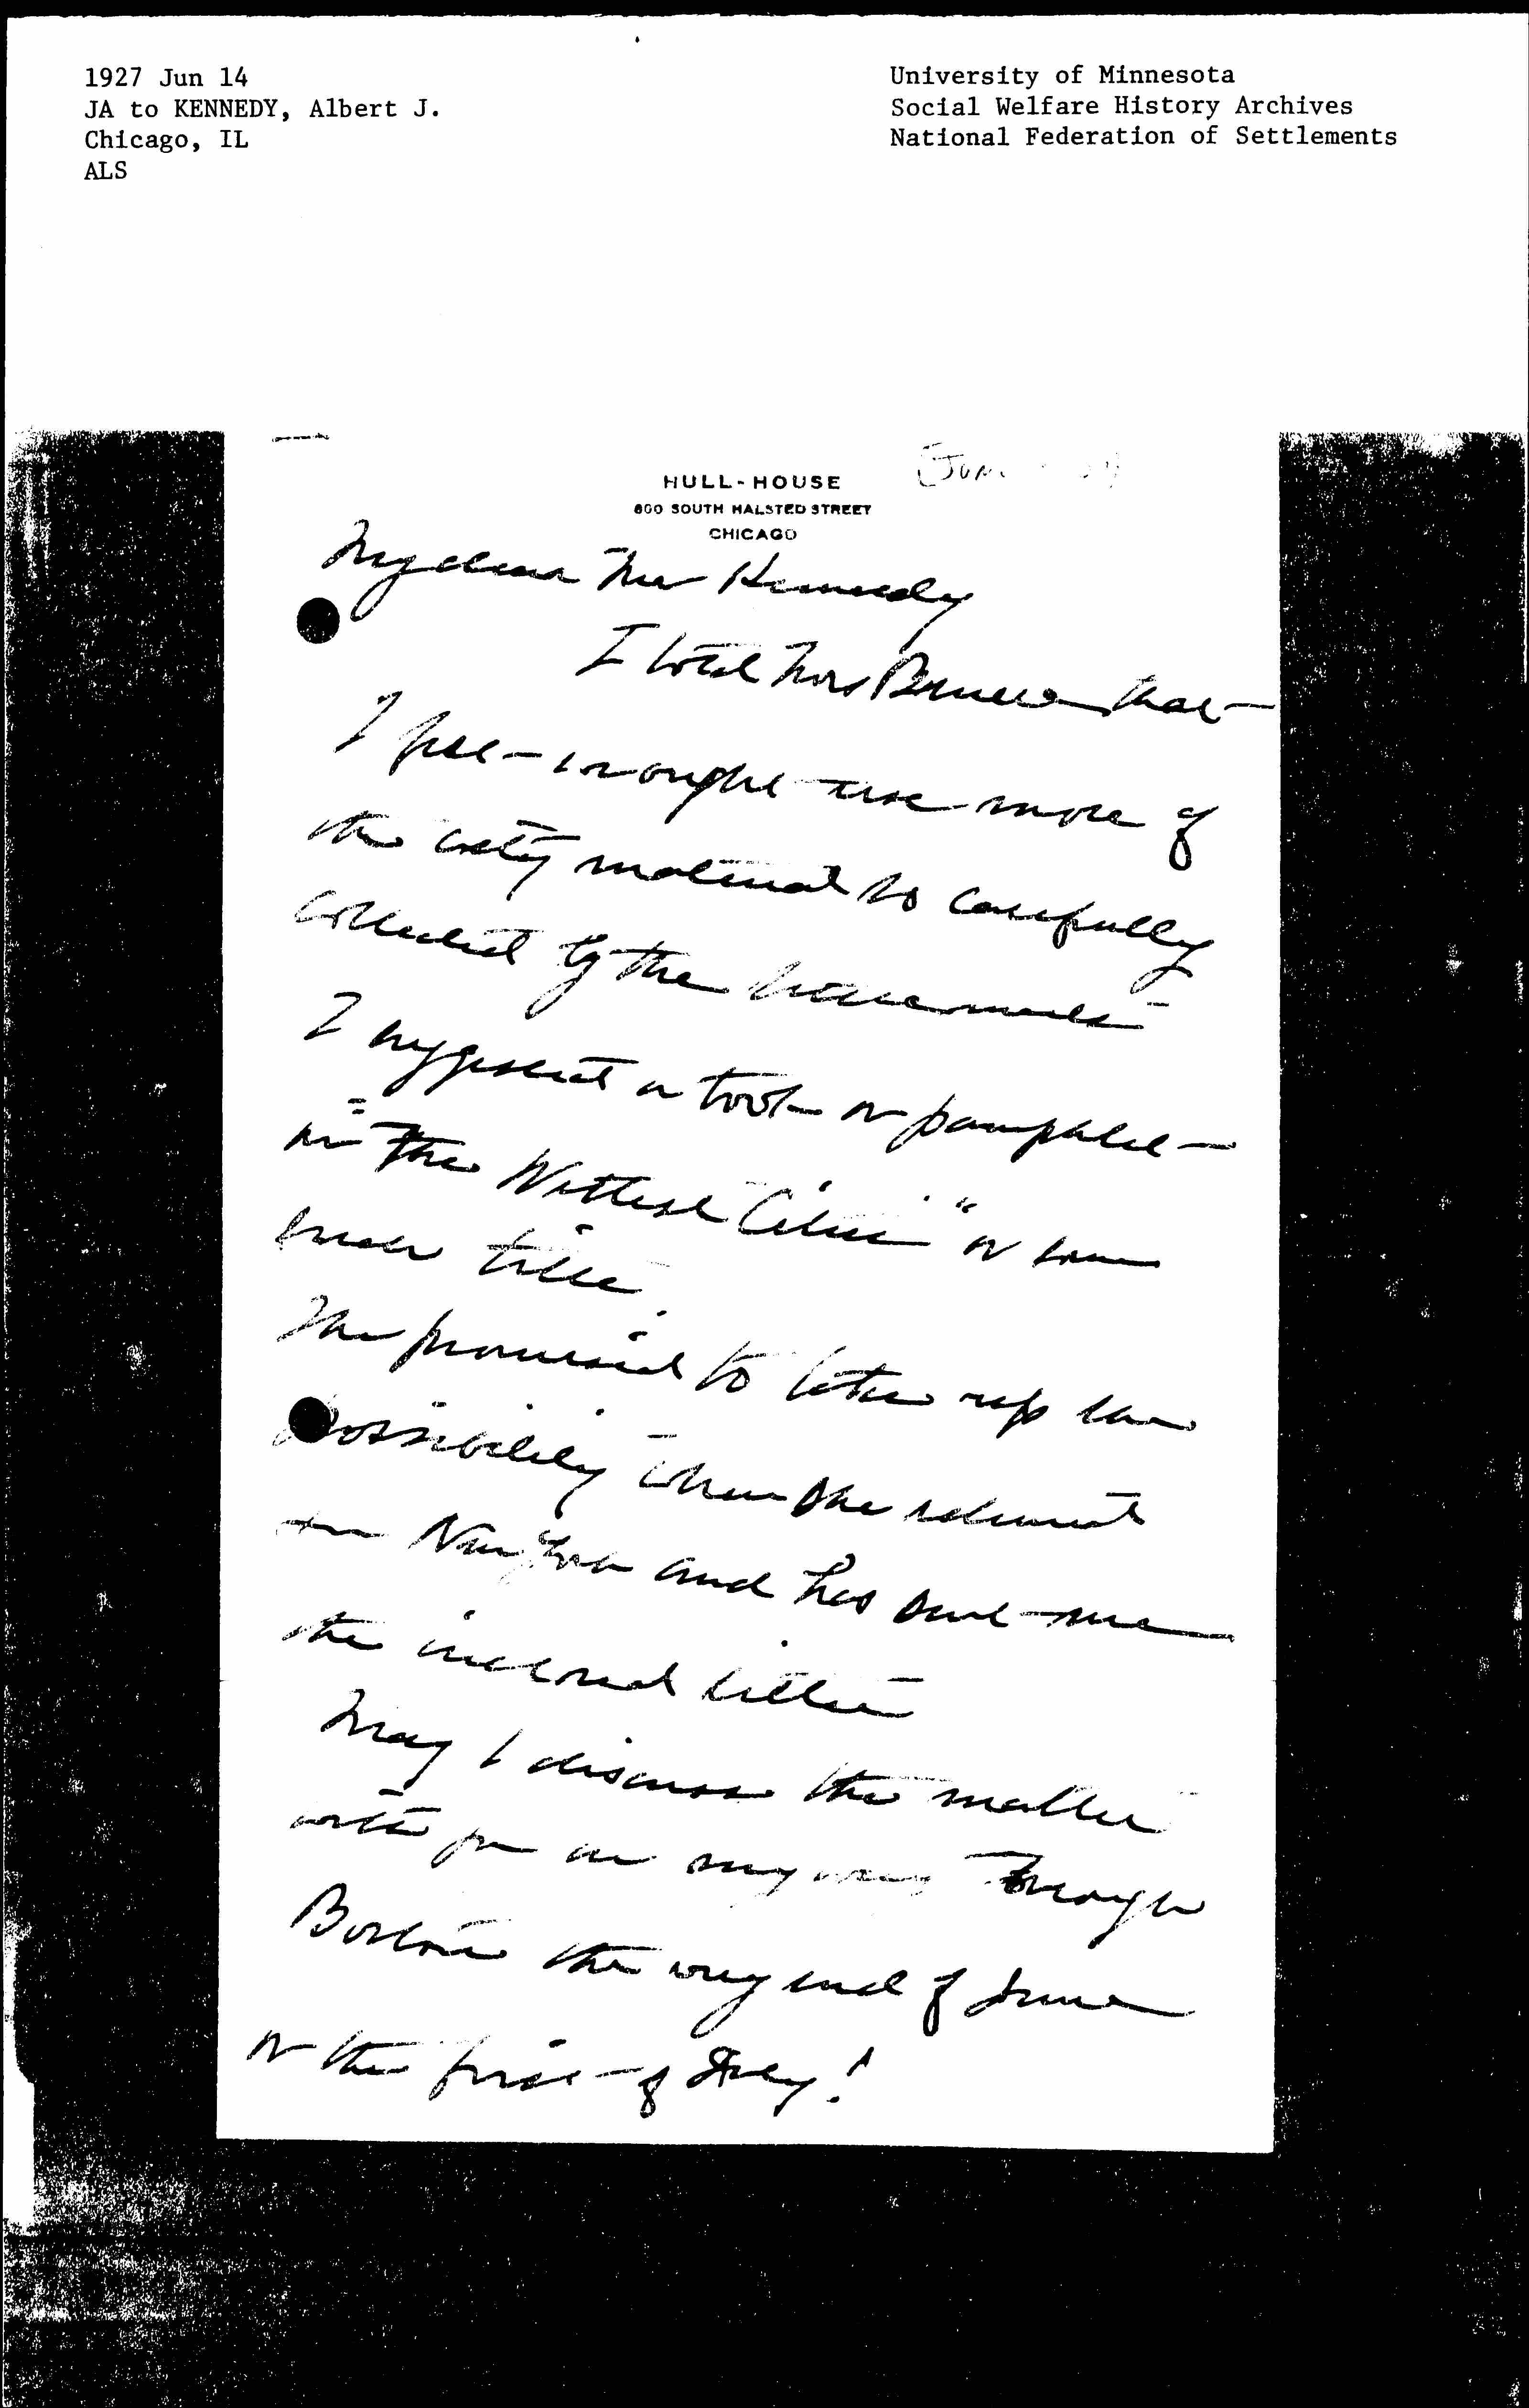 1927 Jun 14
JA to KENNEDY, Albert J.
Chicago, IL
ALS
University of Minnesota
Social Welfare History Archives
National Federation of Settlements
HULL-HOUSE
800 SOUTH HALSTED STREET
CHICAGO
My dear Mr Kennedy
I told Mrs Bruere that
I felt we ought use more of
the wet & dry material so carefully
collected by the
I suggested a book or pamphlet
on "The Wettest Cities" or some
such title.
She promised to take up the
possibility when she returned
to New York and has sent me
the inclosed letter
May I discuss the matter
with you on my way through
Boston the very end of June
or the first of July!